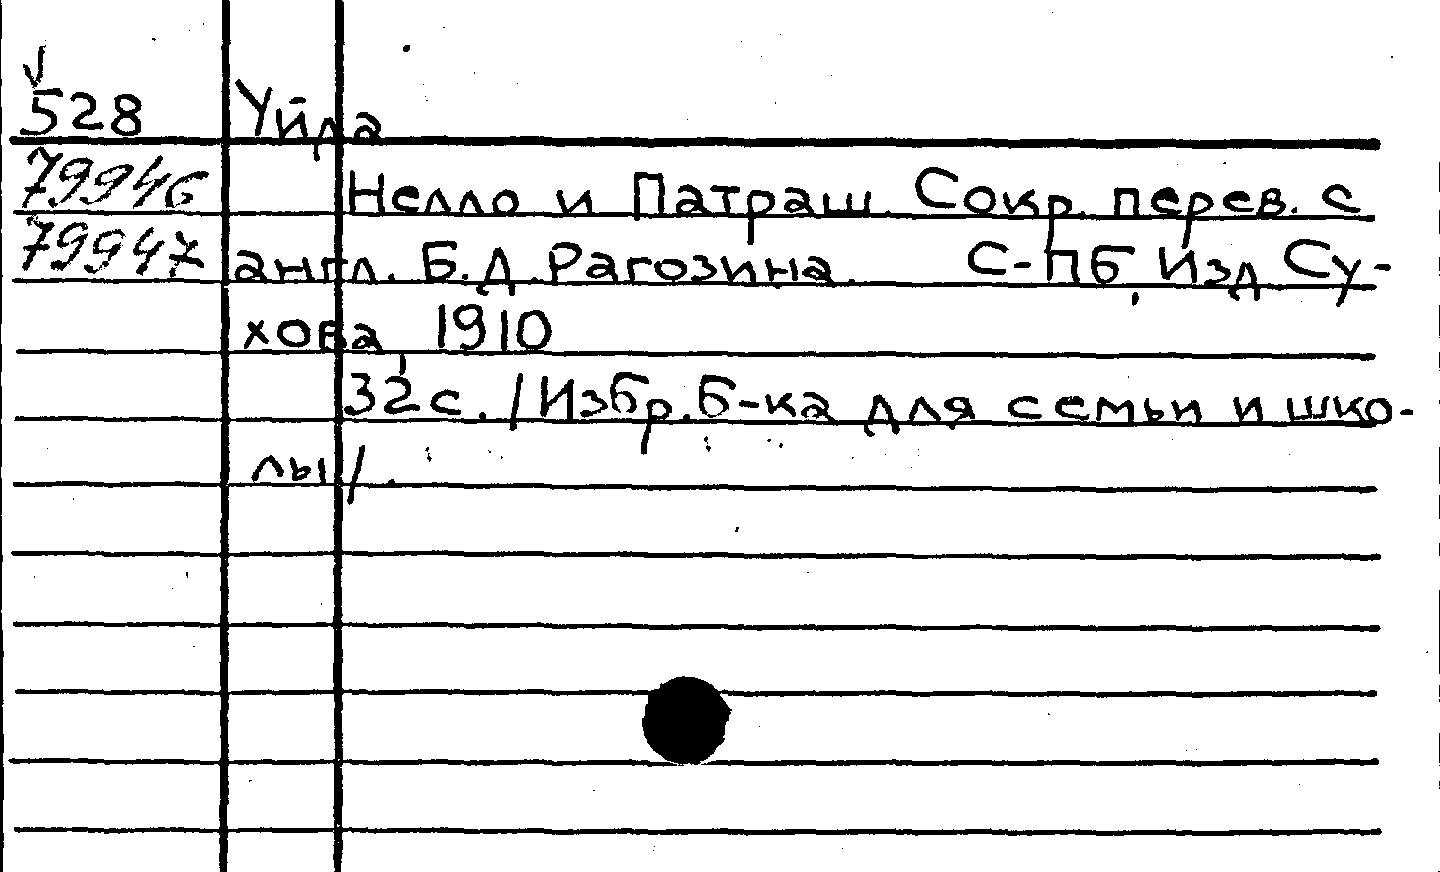 √
528 Уйда
79946 Нелло и Патраш. Сокр. перев. с
79947 англ. Б.Д.Рагозина. С-Пб, Изд Су-
хова, 1910
32с. /Избр.Б-ка для семьи и шко-
лы/.